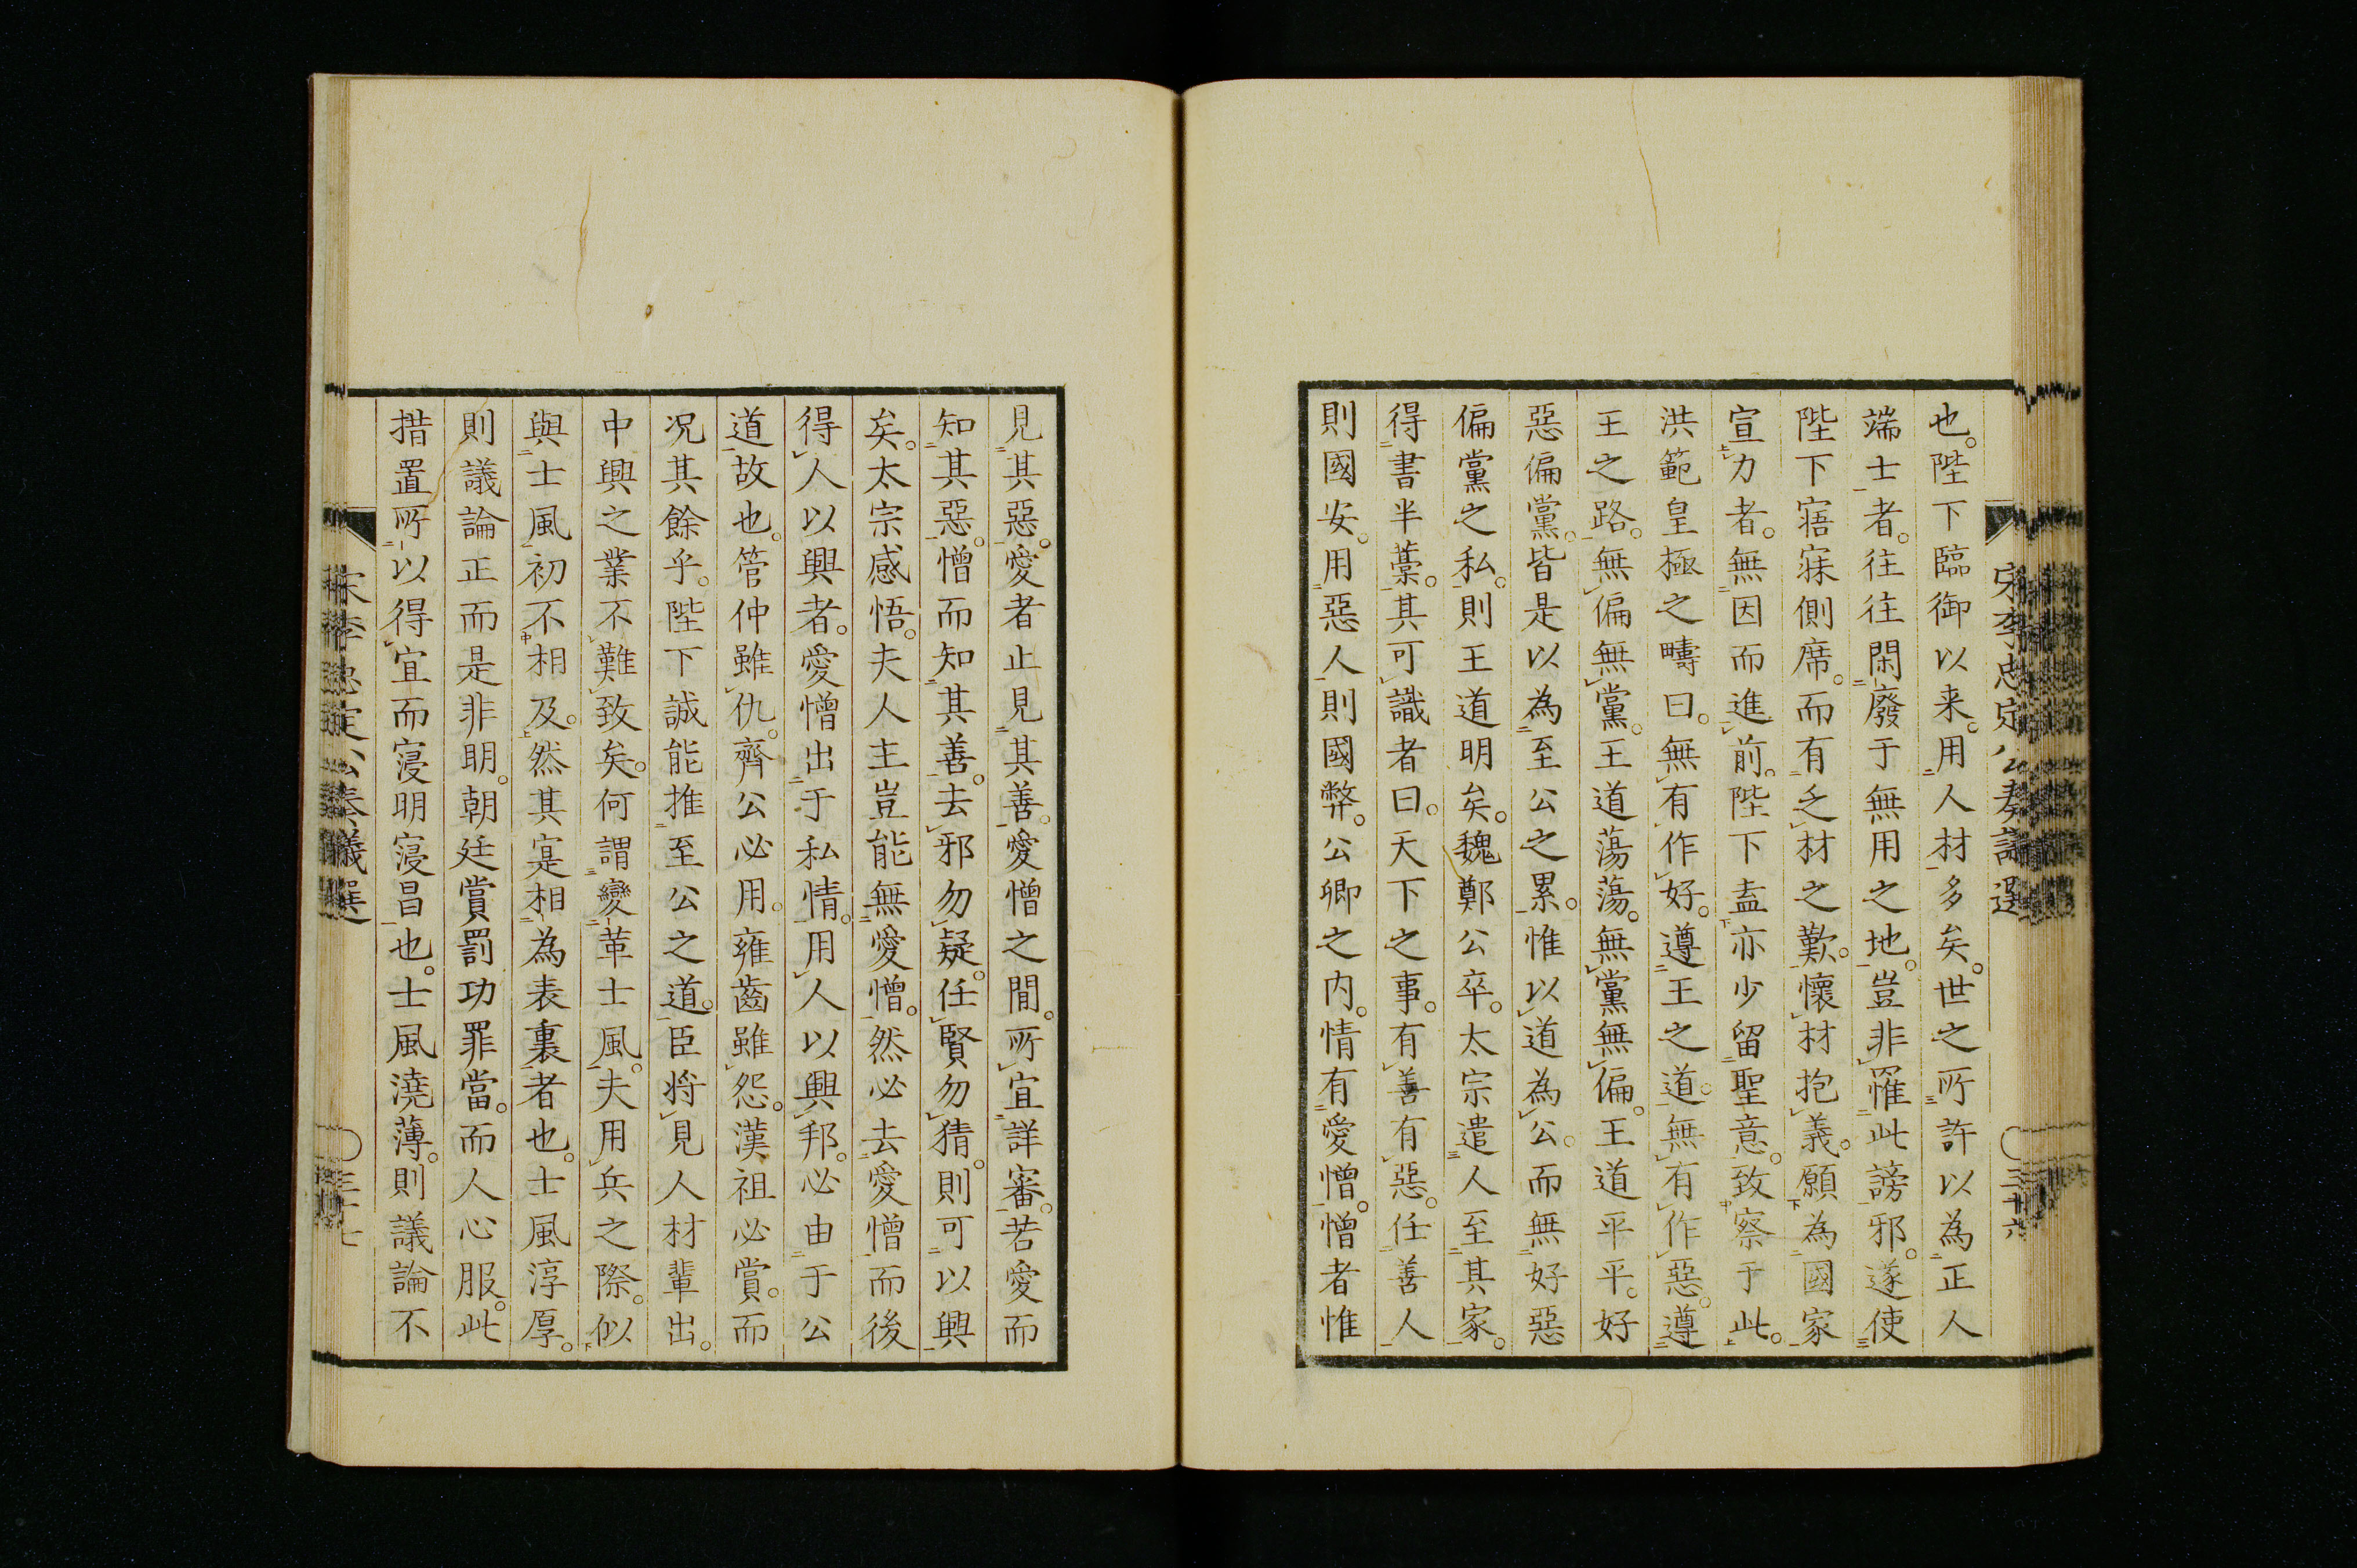 也。陛下臨御以来。用人材多矣。世之所許以為正人
端士者。往往閑廢于無用之地。豈非罹此謗邪。遂使
陛下寤寐側席。而有乏材之歎。懷材抱義。願為國家
宣力者。無因而進前。陛下盍亦少留聖意。致察于此。
洪範皇極之疇曰。無有作好。遵王之道。無有作惡。遵
王之路。無偏無黨。王道蕩蕩。無黨無偏。王道平平。好
惡偏黨。皆是以為至公之累。惟以道為公。而無好惡
偏黨之私。則王道明矣。魏鄭公卒。太宗遣人至其家。
得書半藁。其可識者曰。天下之事。有善有惡。任善人
則國安。用惡人則國弊。公卿之内。情有愛憎。憎者惟
宋李忠定公奏議選
三十六
見其惡。愛者止見其善。愛憎之間。所宜詳審。若愛而
知其惡。憎而知其善。去邪勿疑。任賢勿猜。則可以興
矣。太宗感悟。夫人主豈能無愛憎。然必去愛憎而後
得人以興者。愛憎出于私情。用人以興邦。必由于公
道故也。管仲雖仇。齊公必用。雍齒雖怨。漢祖必賞。而
況其餘乎。陛下誠能推至公之道。臣將見人材輩出。
中興之業不難致矣。何謂變革士風。夫用兵之際。似
與士風初不相及。然其寔相為表裏者也。士風淳厚。
則議論正而是非明。朝廷賞罰功罪當。而人心服。此
措置所以得宜而寖明寖昌也。士風澆薄。則議論不
宋李忠定公奏議選
三十七